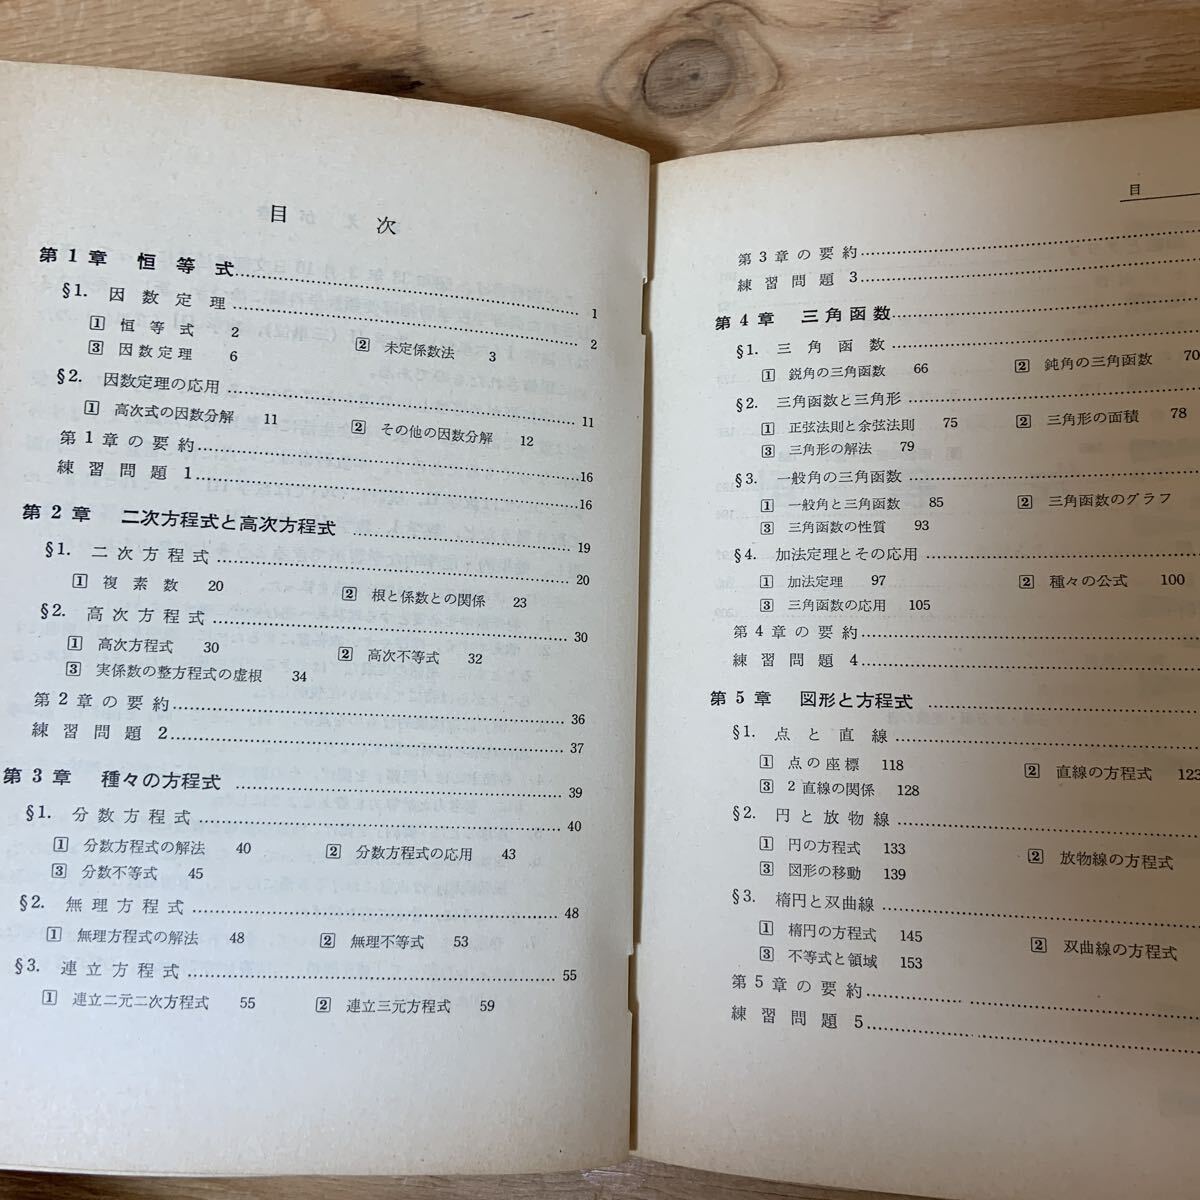 目次
第1章 恒等式……1
§1. 因数定理……2
1 恒等式 2 2 未定係数法 3
3 因数定理 6
§2. 因数定理の応用……11
1 高次式の因数分解 11 2 その他の因数分解 12
第1章の要約……16
練習問題 1……16
第2章 二次方程式と高次方程式……19
§1. 二次方程式……20
1 複素数 20 2 根と係数との関係 23
§2. 高次方程式……30
1 高次方程式 30 2 高次不等式 32
3 実係数の整方程式の虚根 34
第2章の要約……36
練習問題 2……37
第3章 種々の方程式……39
§1. 分数方程式……40
1 分数方程式の解法 40 2 分数方程式の応用 43
3 分数不等式 45
§2. 無理方程式……48
1 無理方程式の解法 48 2 無理不等式 53
§3. 連立方程式……55
1 連立二元二次方程式 55 2 連立三元方程式 59
目
第3章の要約……
練習問題 3……
第4章 三角函数……
§1. 三角函数……
1 鋭角の三角函数 66 2 鈍角の三角函数 70
§2. 三角函数と三角形……
1 正弦法則と余弦法則 75 2 三角形の面積 78
3 三角形の解法 79
§3. 一般角の三角函数……
1 一般角と三角函数 85 2 三角函数のグラフ
3 三角函数の性質 93
§4. 加法定理とその応用……
1 加法定理 97 2 種々の公式 100
3 三角函数の応用 105
第4章の要約……
練習問題 4……
第5章 図形と方程式……
§1. 点と直線……
1 点の座標 118 2 直線の方程式 123
3 2直線の関係 128
§2. 円と放物線……
1 円の方程式 133 2 放物線の方程式
3 図形の移動 139
§3. 楕円と双曲線……
1 楕円の方程式 145 2 双曲線の方程式
3 不等式と領域 153
第5章の要約……
練習問題 5……